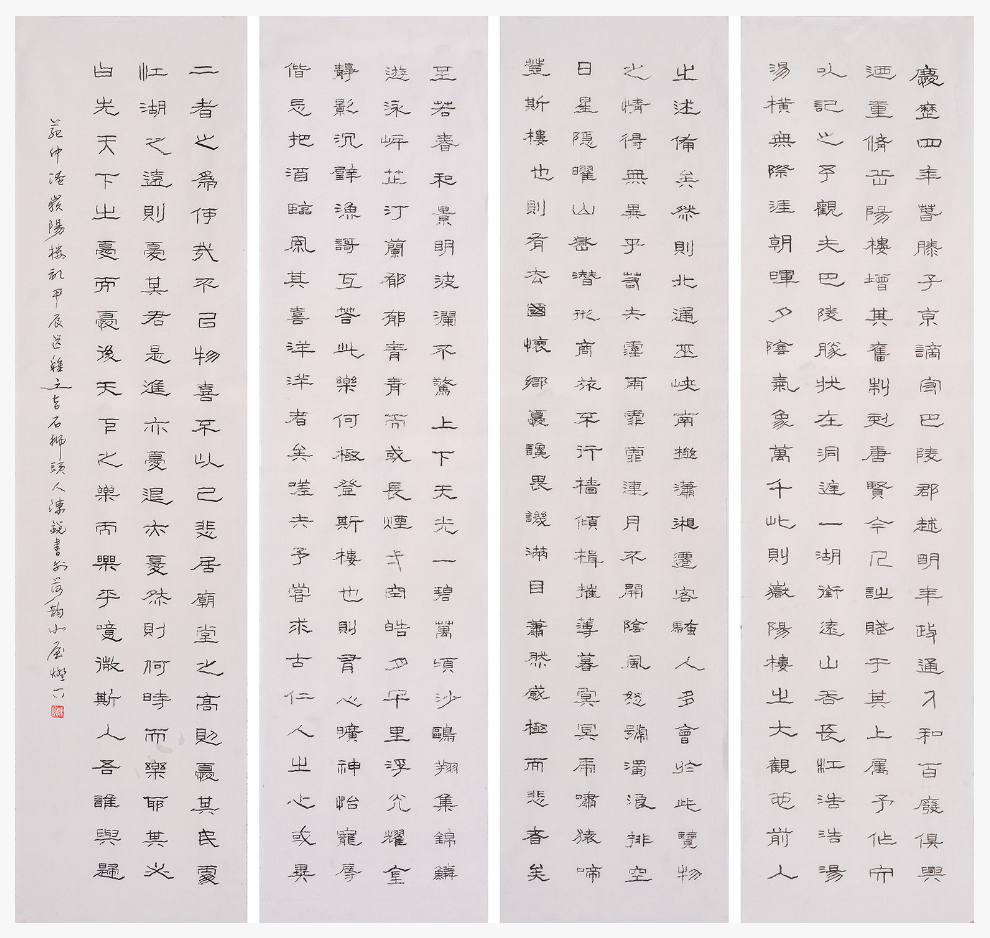 慶歷四年春滕子京謫守巴陵郡越明年政通人和百廢俱興
迺重脩岳陽樓增其舊制刻唐賢今人詩賦于其上属予作而
以記之予觀夫巴陵勝狀在洞庭一湖銜遠山吞長江浩浩湯
湯橫無際涯朝暉夕陰氣象萬千此則嶽陽樓之大觀也前人
之述備矣然則北通巫峽南極瀟湘遷客騷人多會於此覽物
之情得無異乎若夫霪雨霏霏連月不開陰風怒號濁浪排空
日星隱曜山嶽潛形商旅不行檣傾楫摧薄暮冥冥虎嘯猿啼
登斯樓也則有去國懷鄉憂讒畏譏滿目蕭然感極而悲者矣
至若春和景明波瀾不驚上下天光一碧萬頃沙鷗翔集錦鱗
游泳岸芷汀蘭郁郁青青而或長煙弌空皓月千里浮光耀金
靜影沉璧漁歌互答此樂何極登斯樓也則有心曠神怡寵辱
偕忘把酒臨風其喜洋洋者矣嗟夫予嘗求古仁人之心或異
二者之為何哉不以物喜不以己悲居廟堂之高則憂其民處
江湖之遠則憂其君是進亦憂退亦憂然則何時而樂耶其必
曰先天下之憂而憂後天下之樂而樂乎噫微斯人吾誰與歸
范仲淹嶽陽楼記甲辰石獅頭人陳銳書於荷韵小屋燈下